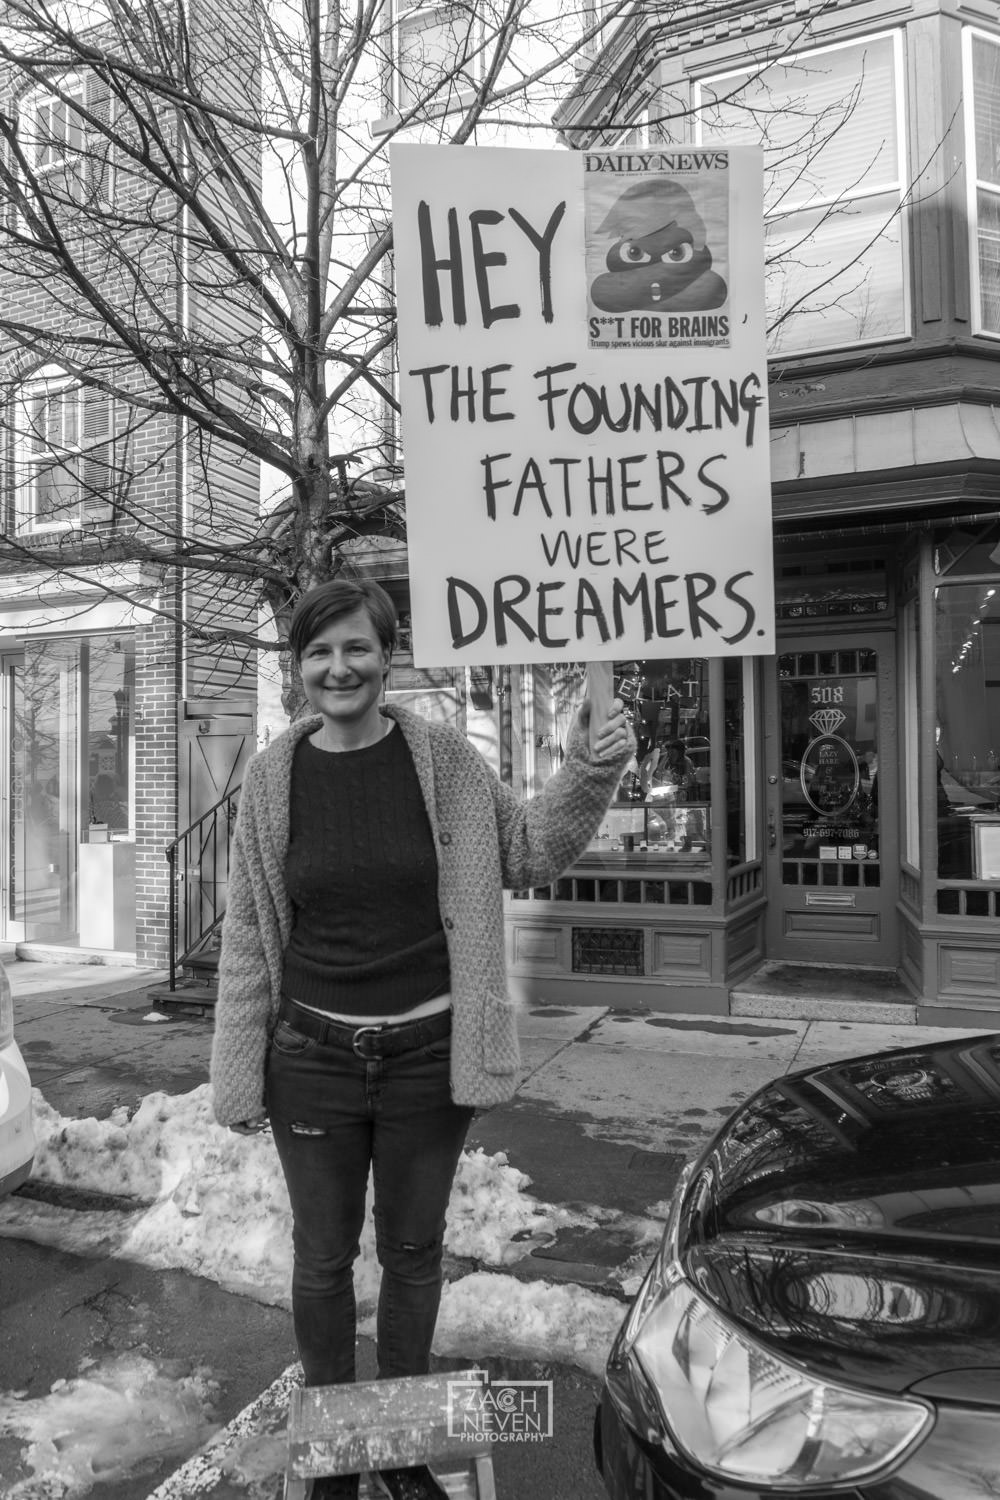 HEY
DAILY NEWS
S**T FOR BRAINS
Trump spews vicious slur against immigrants
,
THE FOUNDING
FATHERS
WERE
DREAMERS.
508
LAZY
HARE
&
917-697-7086
ZACH
NEVEN
PHOTOGRAPHY